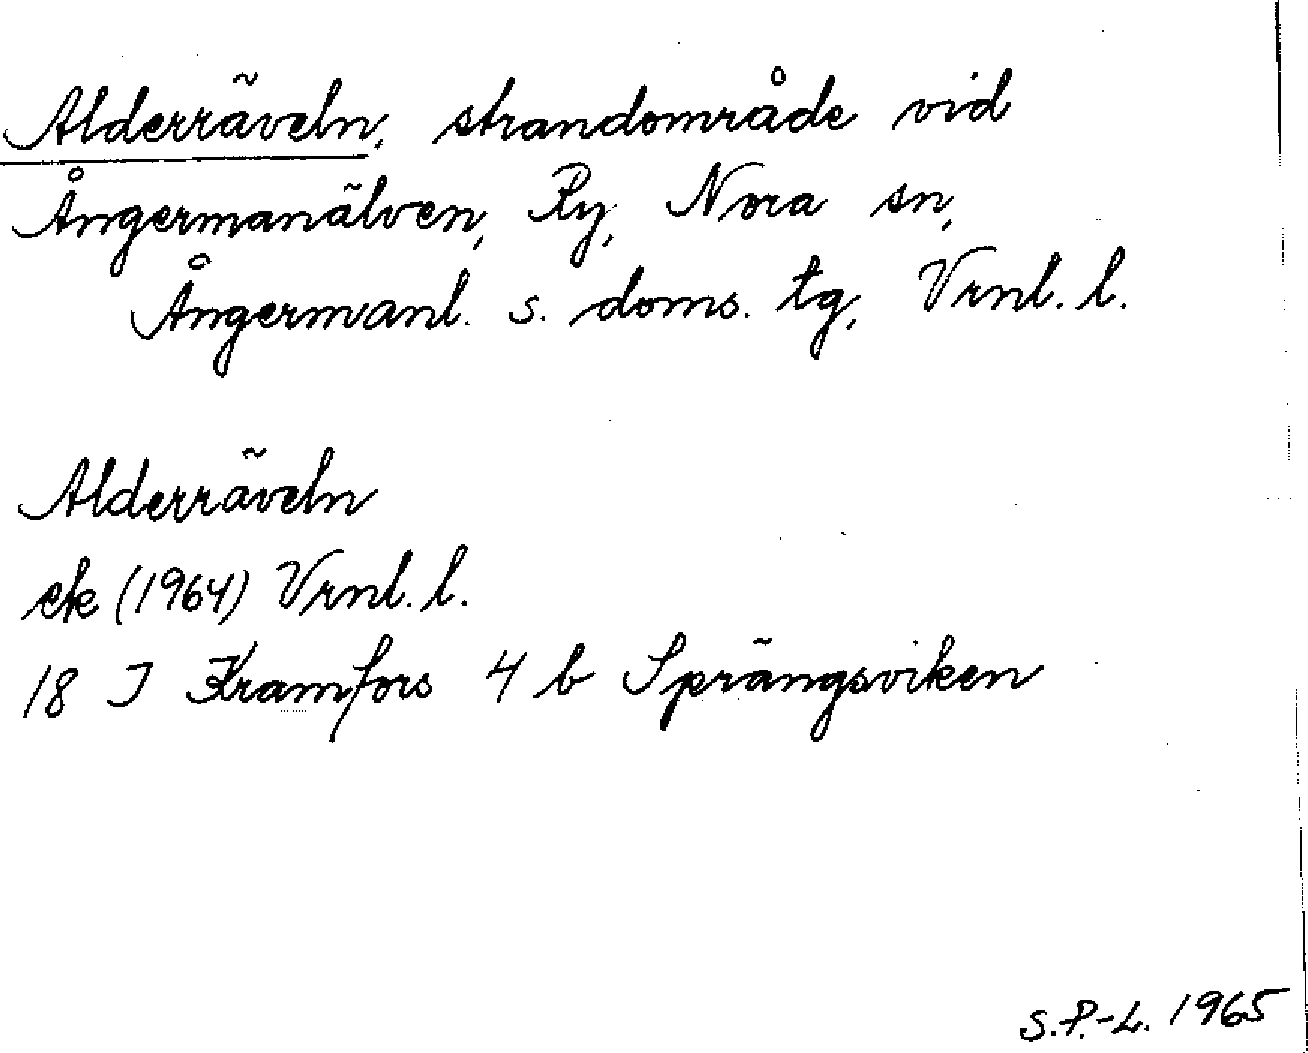 Alderräveln, strandområde vid
Ångermanälven, Ry, Nora sn,
Ångermanl. s. doms. tg, Vrnl. l.
Alderräveln
ek (1964) Vrnl. l.
18 J Kramfors 4 b Sprängsviken
S.P.-L. 1965